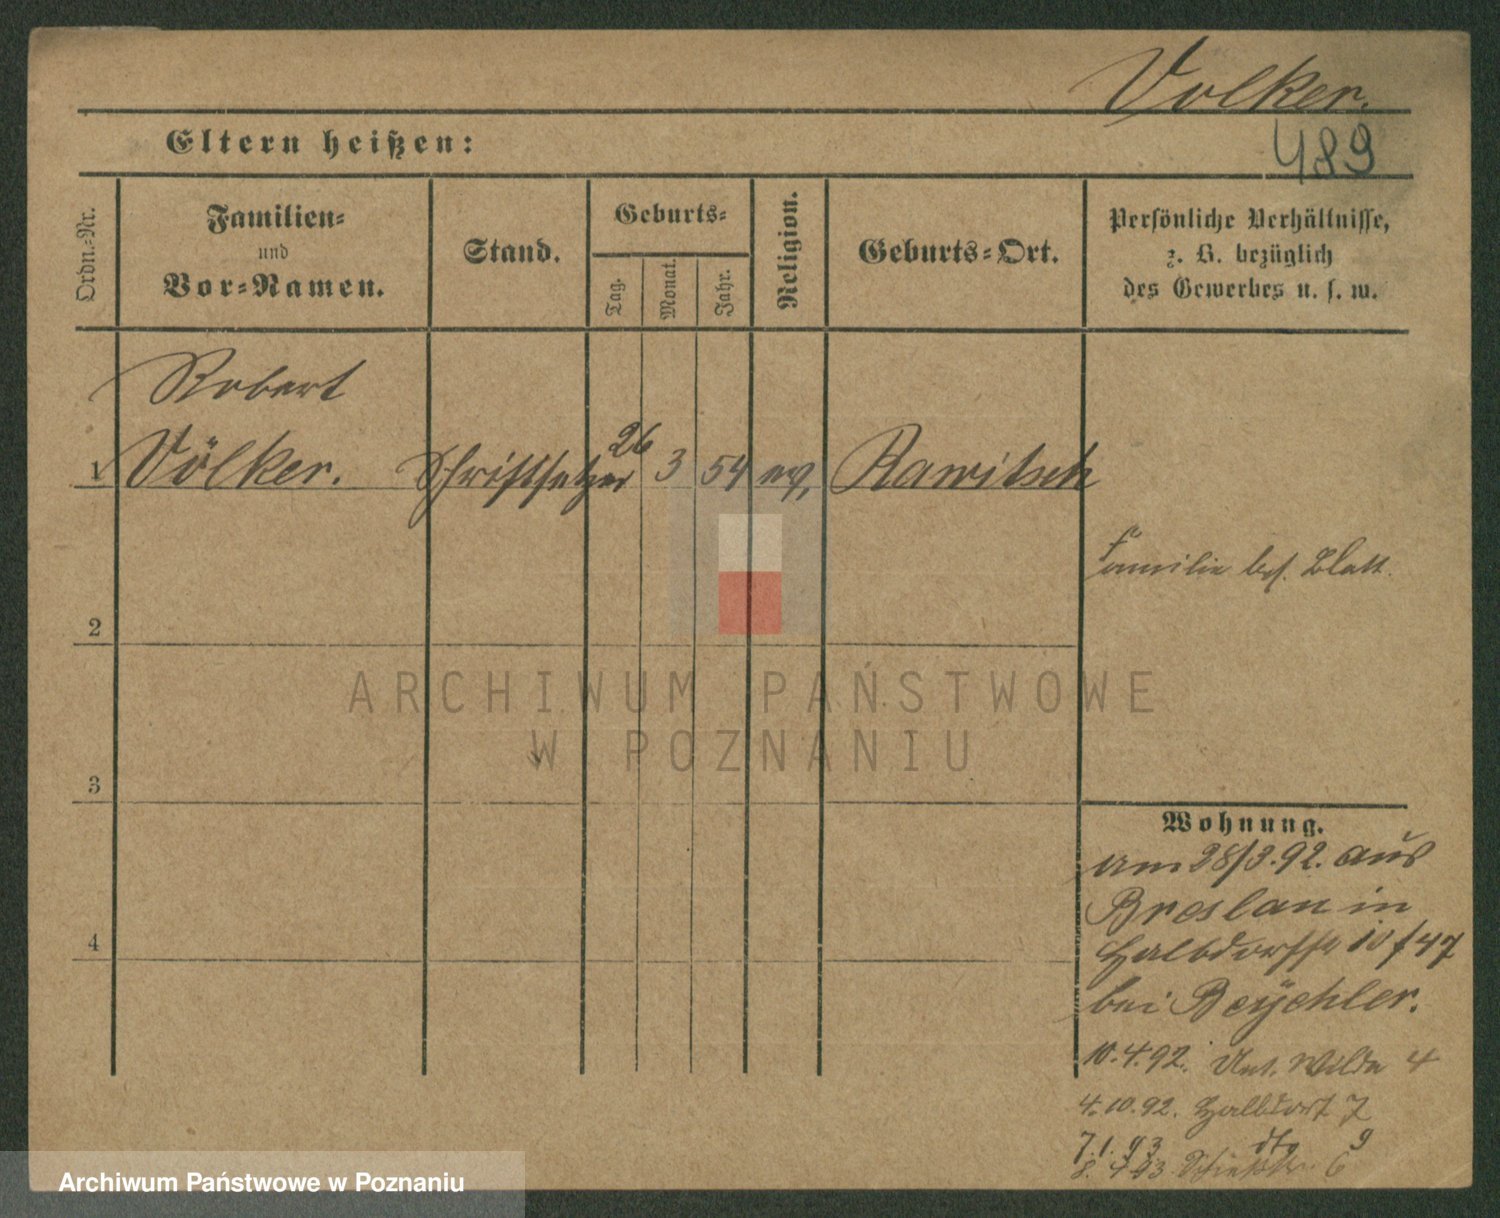 Volker.
489
Eltern heißen:
Ordn.=Nr.
Familien=
und
Vor=Namen.
Stand.
Geburts=
Tag.
Monat.
Jahr.
Religion.
Geburts=Ort.
Persönliche Verhältnisse,
z. B. bezüglich
des Gewerbes u. s. w.
Robert
1 Völker. Schriftsetzer 26 3 54 ev. Rawitsch
Familie bes. Blatt.
2
ARCHIWUM PAŃSTWOWE
W POZNANIU
3
Wohnung.
am 28/3.92. aus
Breslau in
Halbdorfstr 10 f 47
bei
4
10.4.92. Unt. Wilda 4
4.10.92. Halbdorf 7
7.1.93 dto 9
8. 93. 6
Archiwum Państwowe w Poznaniu